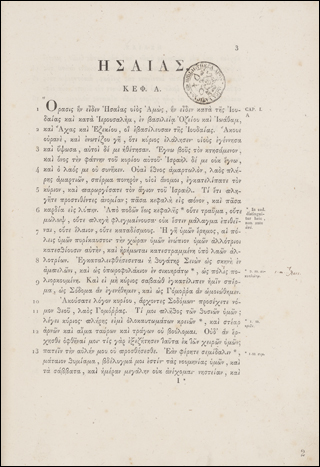 3
ΗΣΑΙΑΣ.
ΚΕΦ. Α.
1 Ὅρασις ἣν εἶδεν Ἡσαΐας υἱὸς Ἀμώς, ἣν εἶδεν κατὰ τῆς Ἰου-
δαίας καὶ κατὰ Ἱερουσαλήμ, ἐν βασιλείᾳ Ὀζείου καὶ Ἰωάθαμ,
2 καὶ Ἄχας καὶ Ἐζεκίου, οἳ ἐβασίλευσαν τῆς Ἰουδαίας. Ἄκουε
οὐρανὲ, καὶ ἐνωτίζου γῆ, ὅτι κύριος ἐλάλησεν· υἱοὺς ἐγέννησα
3 καὶ ὕψωσα, αὐτοὶ δέ με ἠθέτησαν. Ἔγνω βοῦς τὸν κτησάμενον,
καὶ ὄνος τὴν φάτνην τοῦ κυρίου αὐτοῦ· Ἰσραὴλ δέ με οὐκ ἔγνω,
4 καὶ ὁ λαός με οὐ συνῆκεν. Οὐαὶ ἔθνος ἁμαρτωλὸν, λαὸς πλή-
ρης ἁμαρτιῶν, σπέρμα πονηρὸν, υἱοὶ ἄνομοι, ἐγκατελίπατε τὸν
5 κύριον, καὶ παρωργίσατε τὸν ἅγιον τοῦ Ἰσραήλ. Τί ἔτι πλη-
γῆτε προστιθέντες ἀνομίας; πᾶσα κεφαλὴ εἰς πόνον, καὶ πᾶσα
6 καρδία εἰς λύπην. Ἀπὸ ποδῶν ἕως κεφαλῆς * οὔτε τραῦμα, οὔτε
μώλωψ, οὔτε πληγὴ φλεγμαίνουσα· οὐκ ἔστιν μάλαγμα ἐπιθεῖ-
7 ναι, οὔτε ἔλαιον, οὔτε καταδέσμους. Ἡ γῆ ὑμῶν ἔρημος, αἱ πό-
λεις ὑμῶν πυρίκαυστοι· τὴν χώραν ὑμῶν ἐνώπιον ὑμῶν ἀλλότριοι
κατεσθίουσιν αὐτὴν, καὶ ἠρήμωται κατεστραμμένη ὑπὸ λαῶν ἀλ-
8 λοτρίων. Ἐγκαταλειφθήσεται ἡ θυγάτηρ Σειὼν ὡς σκηνὴ ἐν
ἀμπελῶνι, καὶ ὡς ὀπωροφυλάκιον ἐν σικυηράτῳ *, ὡς πόλις πο-
9 λιορκουμένη. Καὶ εἰ μὴ κύριος σαβαὼθ ἐγκατέλιπεν ἡμῖν σπέρ-
μα, ὡς Σόδομα ἂν ἐγενήθημεν, καὶ ὡς Γόμορρα ἂν ὡμοιώθημεν.
10 Ἀκούσατε λόγον κυρίου, ἄρχοντες Σοδόμων· προσέχετε νό-
11 μον θεοῦ, λαὸς Γομόρρας. Τί μοι πλῆθος τῶν θυσιῶν ὑμῶν;
λέγει κύριος· πλήρης εἰμὶ ὁλοκαυτωμάτων κριῶν *, καὶ στέαρ
12 ἀρνῶν καὶ αἷμα ταύρων καὶ τράγων οὐ βούλομαι. Οὐδ' ἂν ἔρ-
χησθε ὀφθῆναί μοι· τίς γὰρ ἐξεζήτησεν ταῦτα ἐκ τῶν χειρῶν ὑμῶν;
13 πατεῖν τὴν αὐλήν μου οὐ προσθήσεσθε. Ἐὰν φέρητε σεμίδαλιν *,
μάταιον· θυμίαμα, βδέλυγμά μοί ἐστιν· τὰς νουμηνίας ὑμῶν, καὶ
τὰ σάββατα, καὶ ἡμέραν μεγάλην οὐκ ἀνέχομαι· νηστείαν, καὶ
1 *
CAP. I.